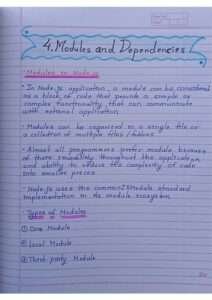 4. Modules and Dependencies
• Modules in Node.js
• In Node.js application, a module can be considered
as a block of code that provide a simple or
complex functionality that can communicate
with external application.
• Modules can be organized in a single file or
a collection of multiple files / folders.
• Almost all programmers prefer modules because
of their reusability throughout the application
and ability to reduce the complexity of code
into smaller pieces.
• Node.js uses the commonJS Module standard
implementation in its module ecosystem.
Types of Modules
① Core Module
② Local Module
③ Third party Module